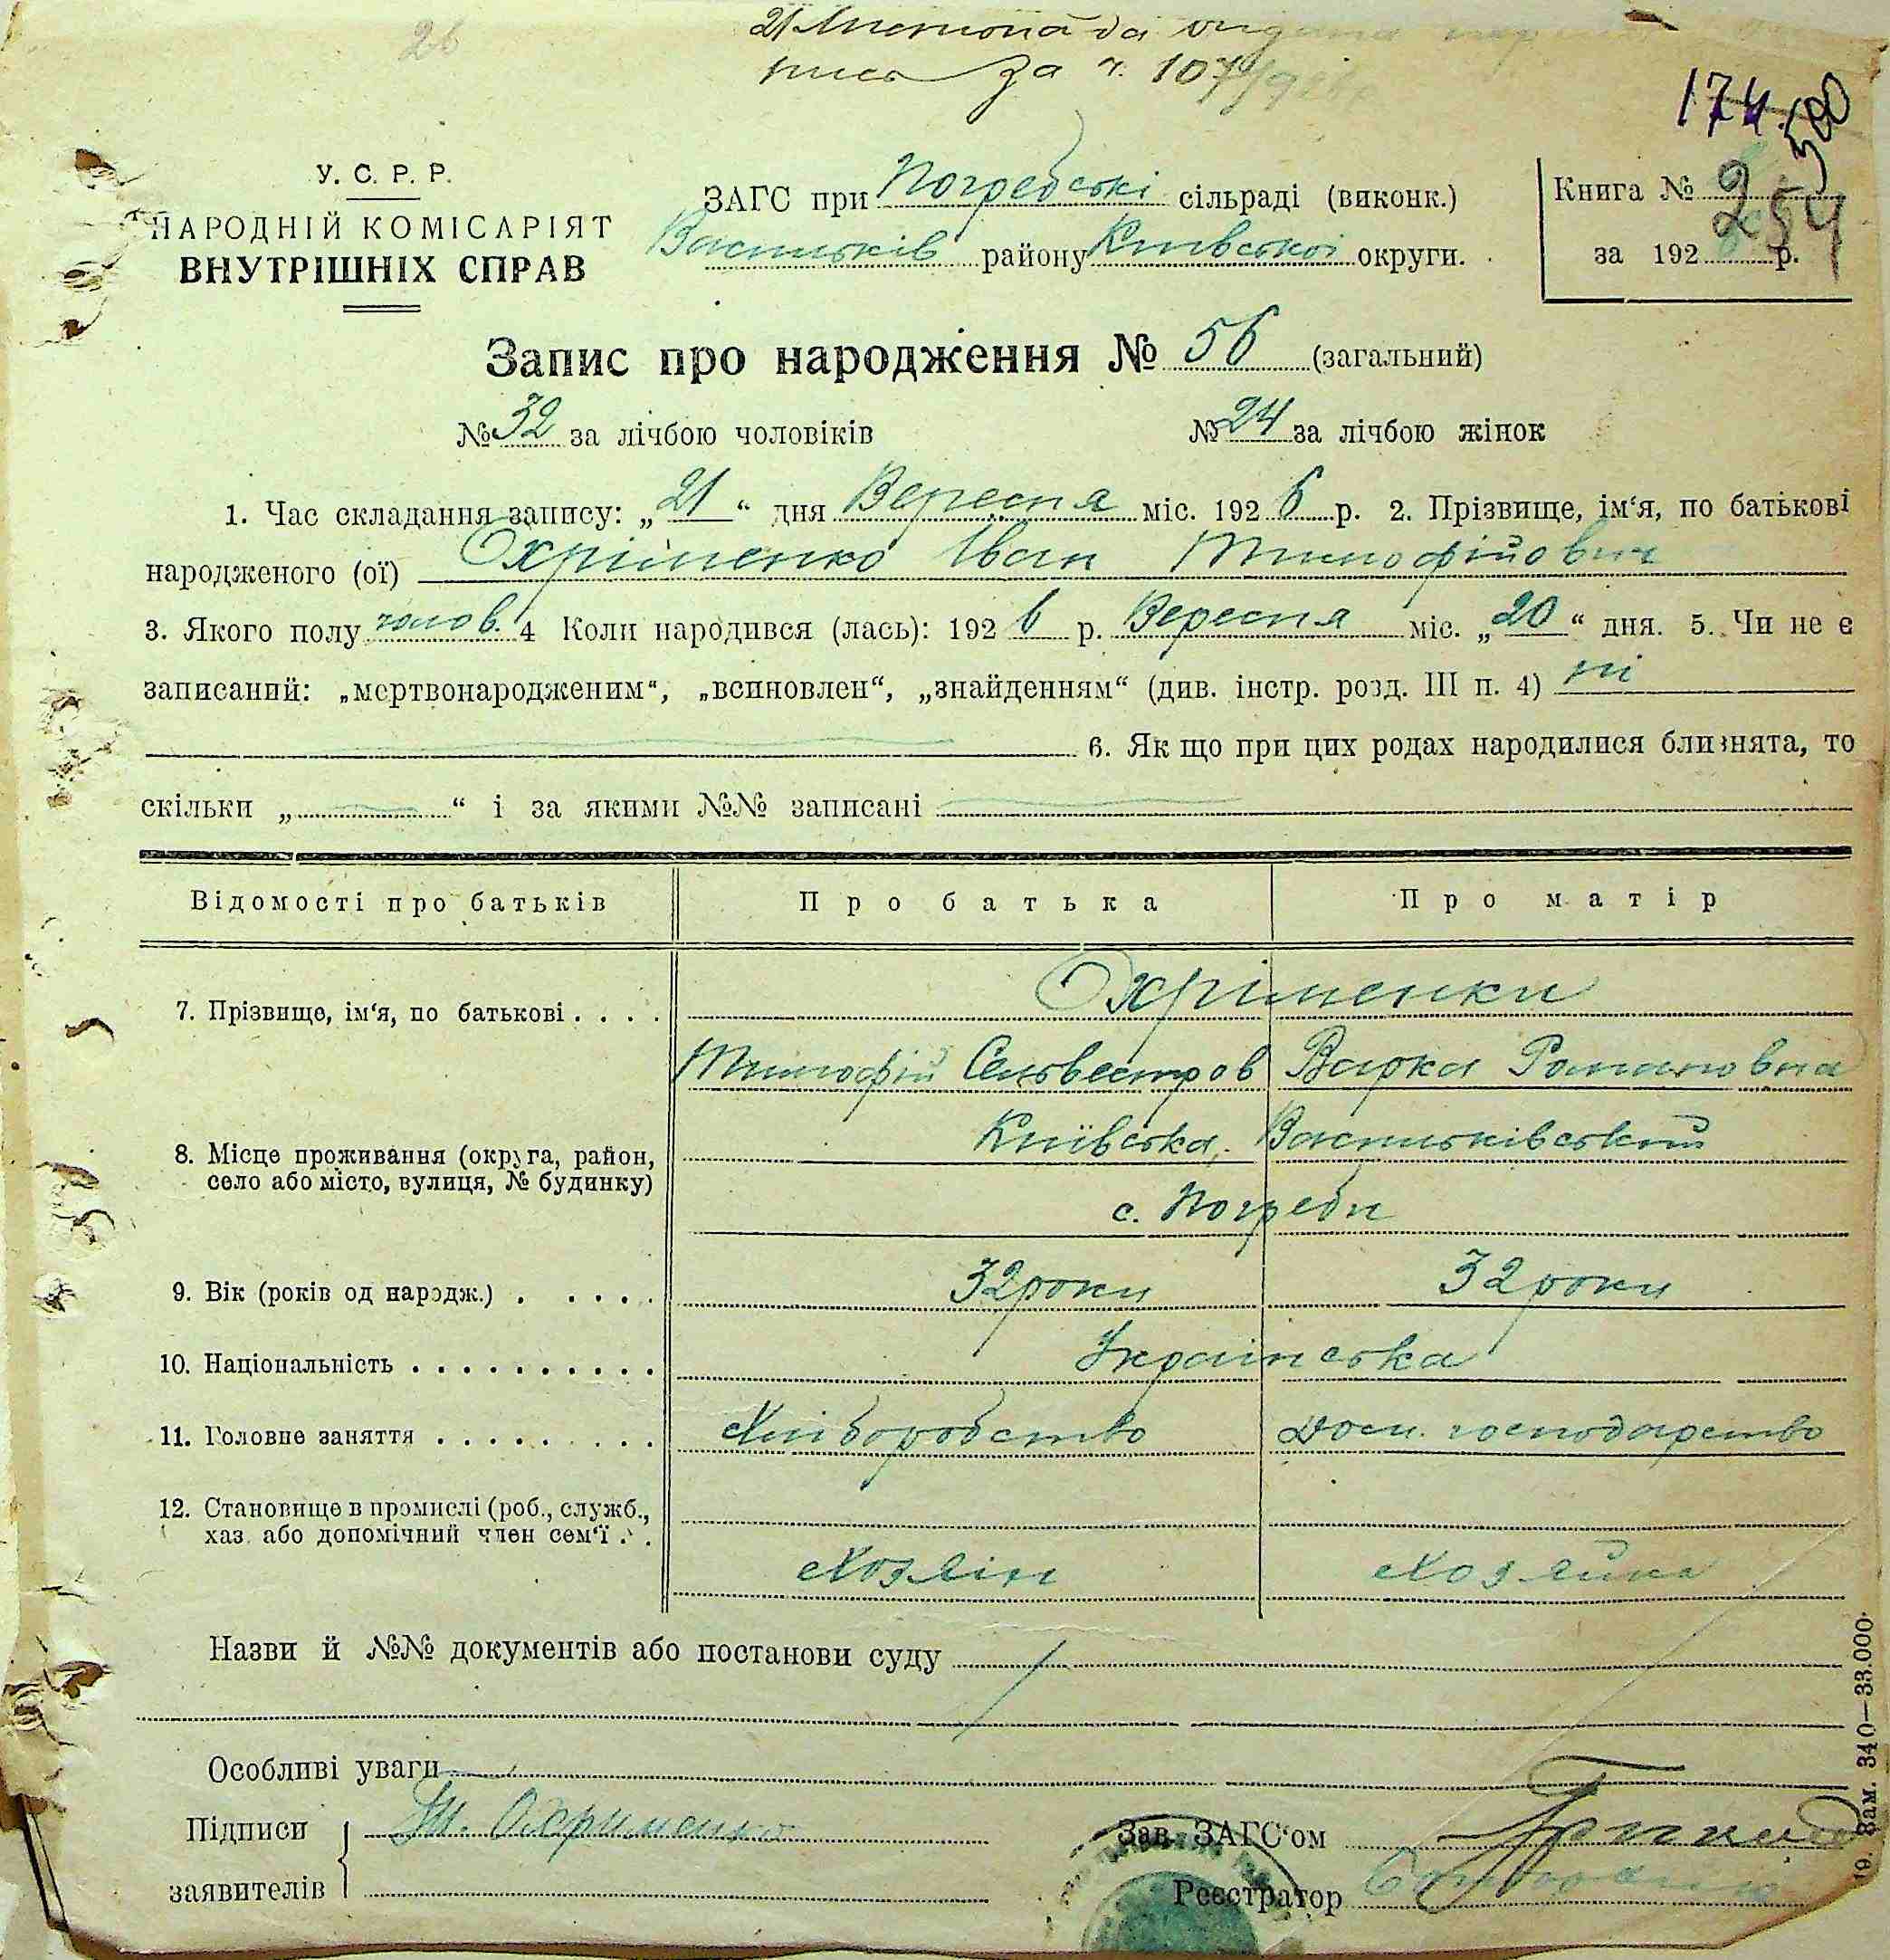 26
за ч. 107
174. 500
У. С. Р. Р.
НАРОДНІЙ КОМІСАРІЯТ
ВНУТРІШНІХ СПРАВ
ЗАГС при Погребські сільраді (виконк.)
Васильків району Київської округи.
Книга № 2
254
за 192 р.
Запис про народження № 56 (загальний)
№ 32 за лічбою чоловіків № 24 за лічбою жінок
1. Час складання запису: „21“ дня Вересня міс. 1926 р. 2. Прізвище, ім‘я, по батькові
народженого (ої) Охріменко Іван Тимофійович
3. Якого полу чолов. 4 Коли народився (лась): 1926 р. Вересня міс. „20“ дня. 5. Чи не є
записаний: „мертвонародженим“, „всиновлен“, „знайденням“ (див. інстр. розд. III п. 4) ні
6. Як що при цих родах народилися близнята, то
скільки „ “ і за якими №№ записані
Відомості про батьків Про батька Про матір
7. Прізвище, ім‘я, по батькові . . . . Охріменки
Тимофій Сельвестров Варка Романовна
8. Місце проживання (округа, район,
село або місто, вулиця, № будинку)
Київська, Васильківський
с. Погреби
9. Вік (років од народж.) . . . . . 32 роки 32 роки
10. Національність . . . . . . . . . . Українська
11. Головне заняття . . . . . . . . . Хліборобство Дом. господарство
12. Становище в промислі (роб., служб.,
хаз. або допомічний член сем‘ї . .
Хозяін Хозяйка
Назви й №№ документів або постанови суду
Особливі уваги
Підписи
заявителів
Т. Охрименко
Зав. ЗАГС‘ом
Реєстратор
19. Зам. 340—33.000.